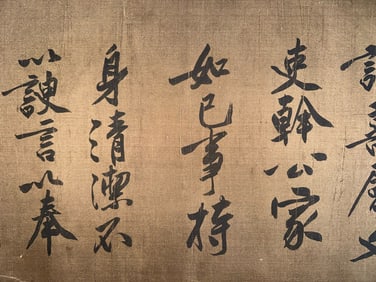 吏幹公家
如已事持
身清潔不
以諛言以奉